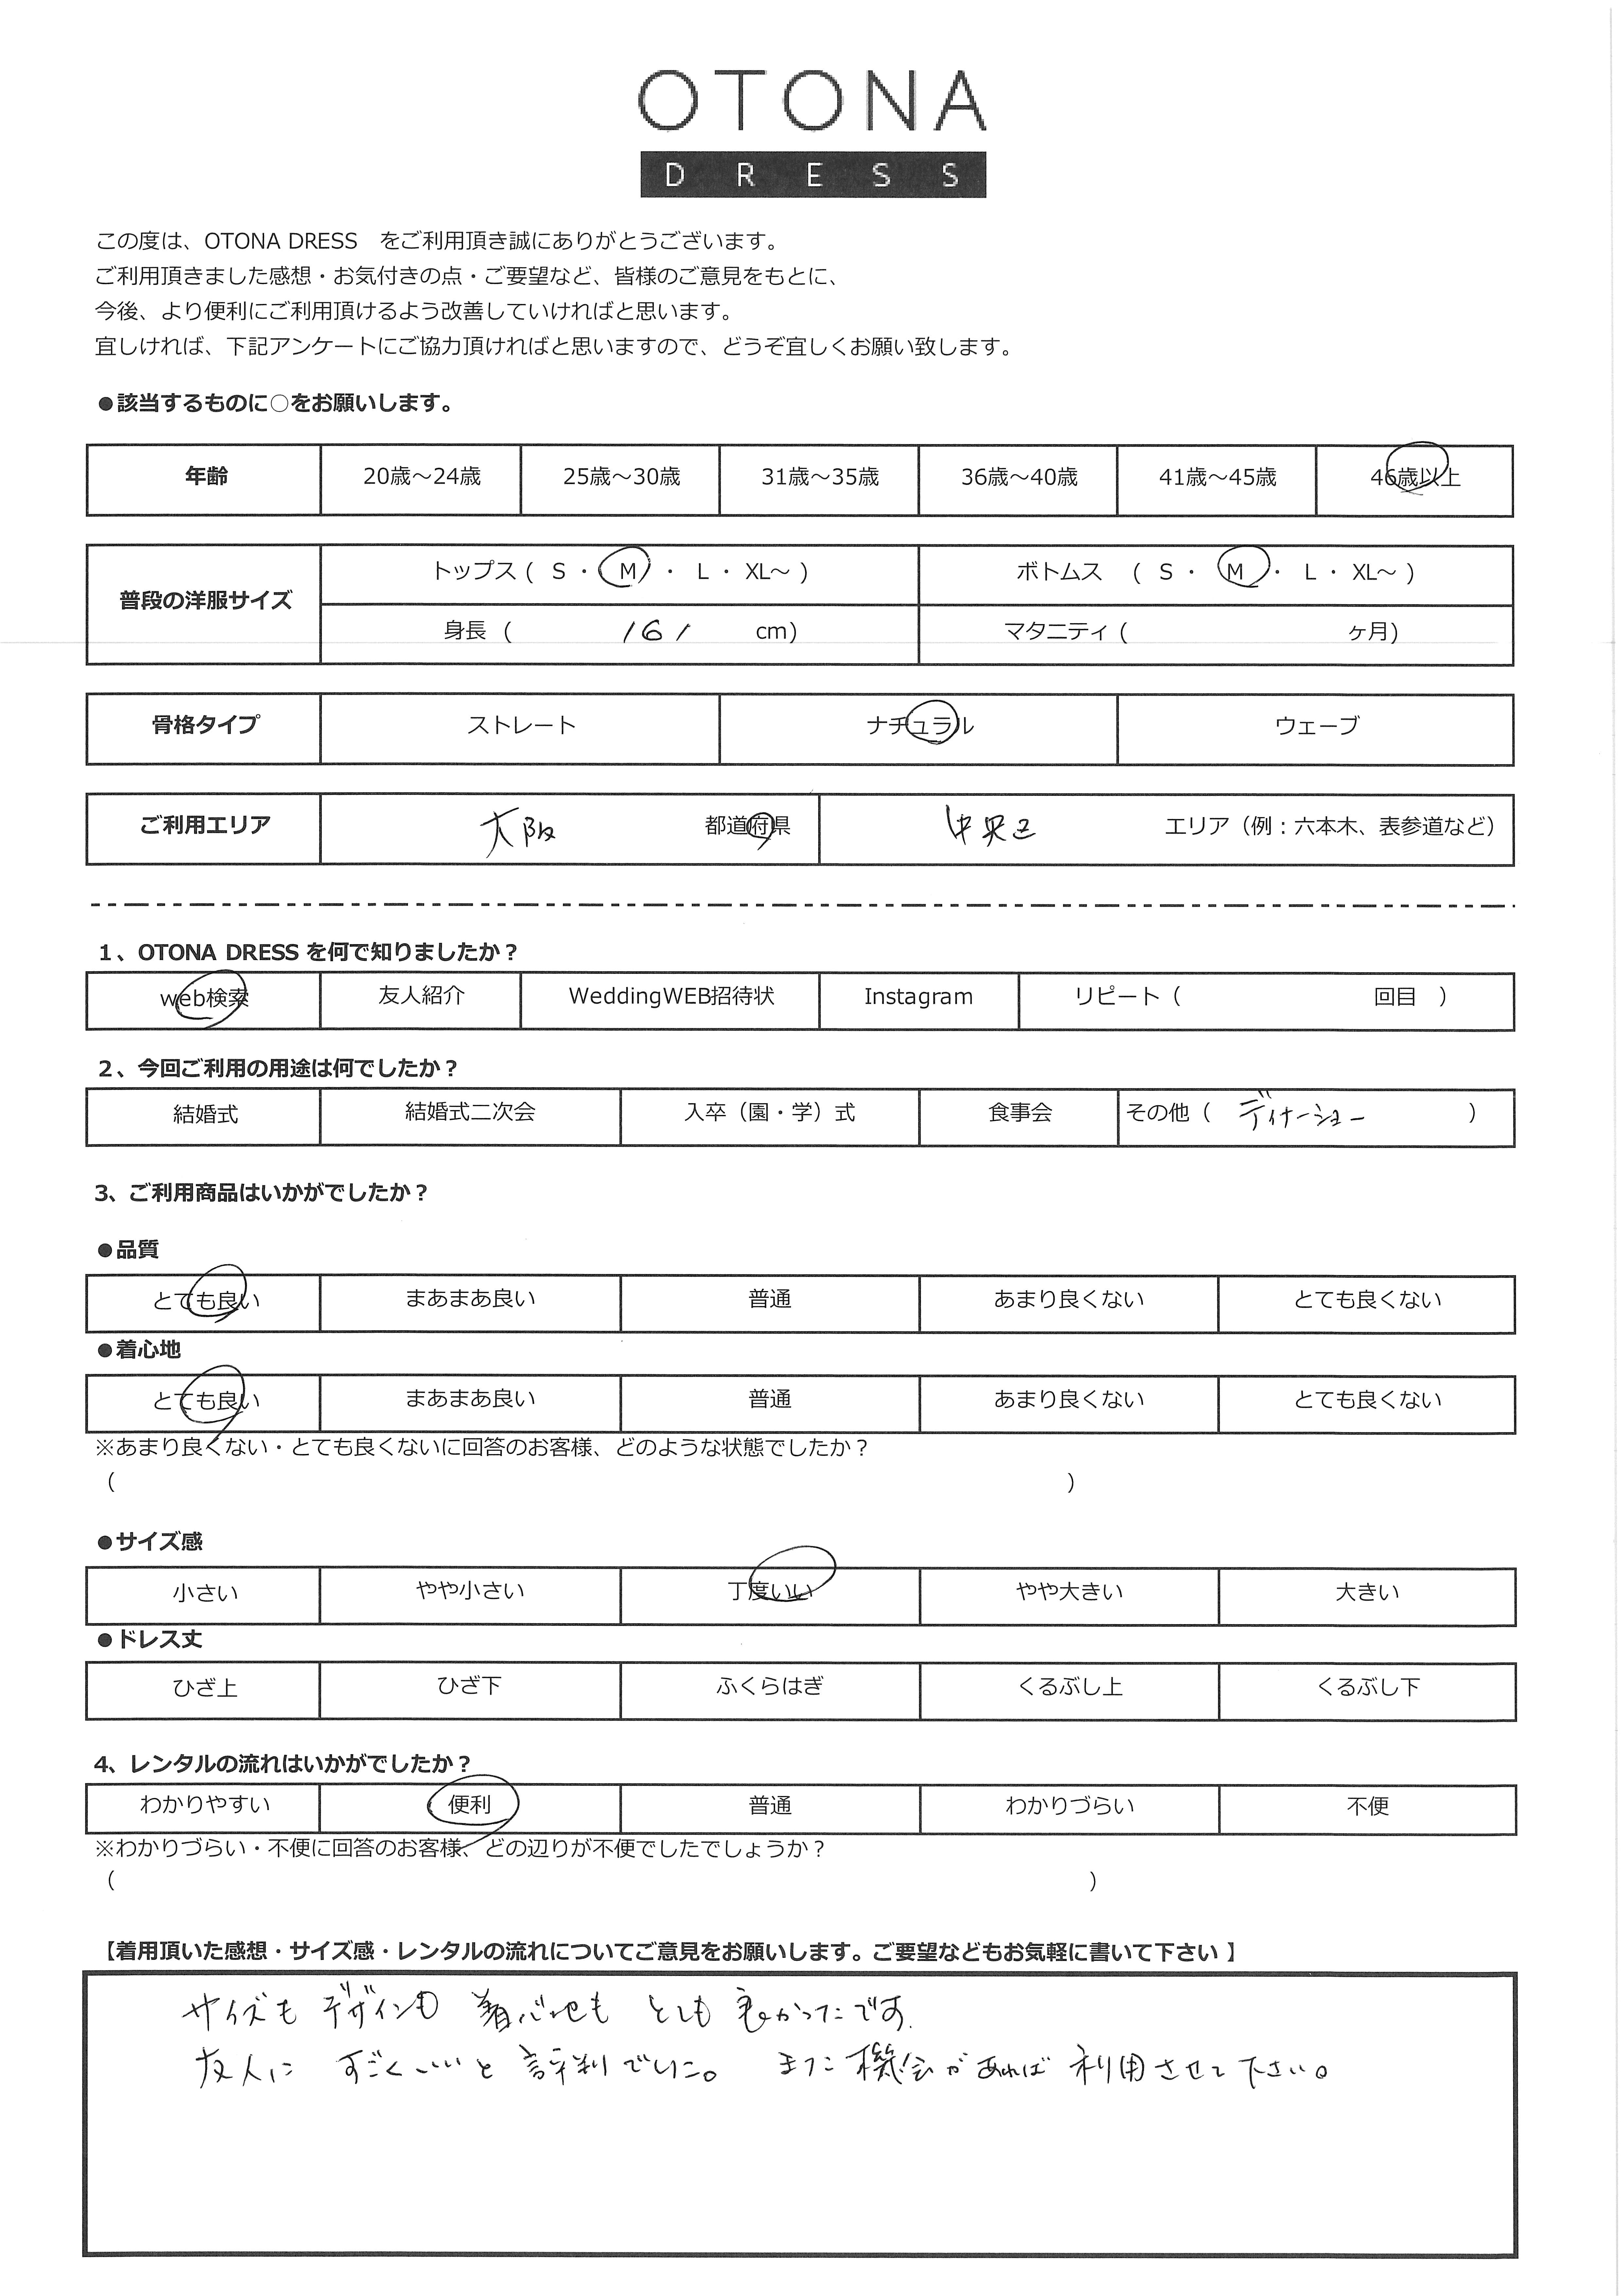 OTONA
DRESS
この度は、OTONA DRESS をご利用頂き誠にありがとうございます。
ご利用頂きました感想・お気付きの点・ご要望など、皆様のご意見をもとに、
今後、より便利にご利用頂けるよう改善していければと思います。
宜しければ、下記アンケートにご協力頂ければと思いますので、どうぞ宜しくお願い致します。
●該当するものに○をお願いします。
年齢 20歳～24歳 25歳～30歳 31歳～35歳 36歳～40歳 41歳～45歳 46歳以上
普段の洋服サイズ トップス ( S ・ M ・ L ・ XL～ ) ボトムス ( S ・ M ・ L ・ XL～ )
身長 ( 161 cm) マタニティ ( ヶ月)
骨格タイプ ストレート ナチュラル ウェーブ
ご利用エリア 大阪 都道府県 中央区 エリア（例：六本木、表参道など）
1、OTONA DRESS を何で知りましたか？
web検索 友人紹介 WeddingWEB招待状 Instagram リピート（ 回目 ）
2、今回ご利用の用途は何でしたか？
結婚式 結婚式二次会 入卒（園・学）式 食事会 その他（ ディナーショー ）
3、ご利用商品はいかがでしたか？
●品質
とても良い まあまあ良い 普通 あまり良くない とても良くない
●着心地
とても良い まあまあ良い 普通 あまり良くない とても良くない
※あまり良くない・とても良くないに回答のお客様、どのような状態でしたか？
（ ）
●サイズ感
小さい やや小さい 丁度いい やや大きい 大きい
●ドレス丈
ひざ上 ひざ下 ふくらはぎ くるぶし上 くるぶし下
4、レンタルの流れはいかがでしたか？
わかりやすい 便利 普通 わかりづらい 不便
※わかりづらい・不便に回答のお客様、どの辺りが不便でしたでしょうか？
（ ）
【着用頂いた感想・サイズ感・レンタルの流れについてご意見をお願いします。ご要望などもお気軽に書いて下さい 】
サイズも デザインも 着心地も とても 良かったです.
友人に すごくいいと 評判でした。 また 機会があれば 利用させて下さい。